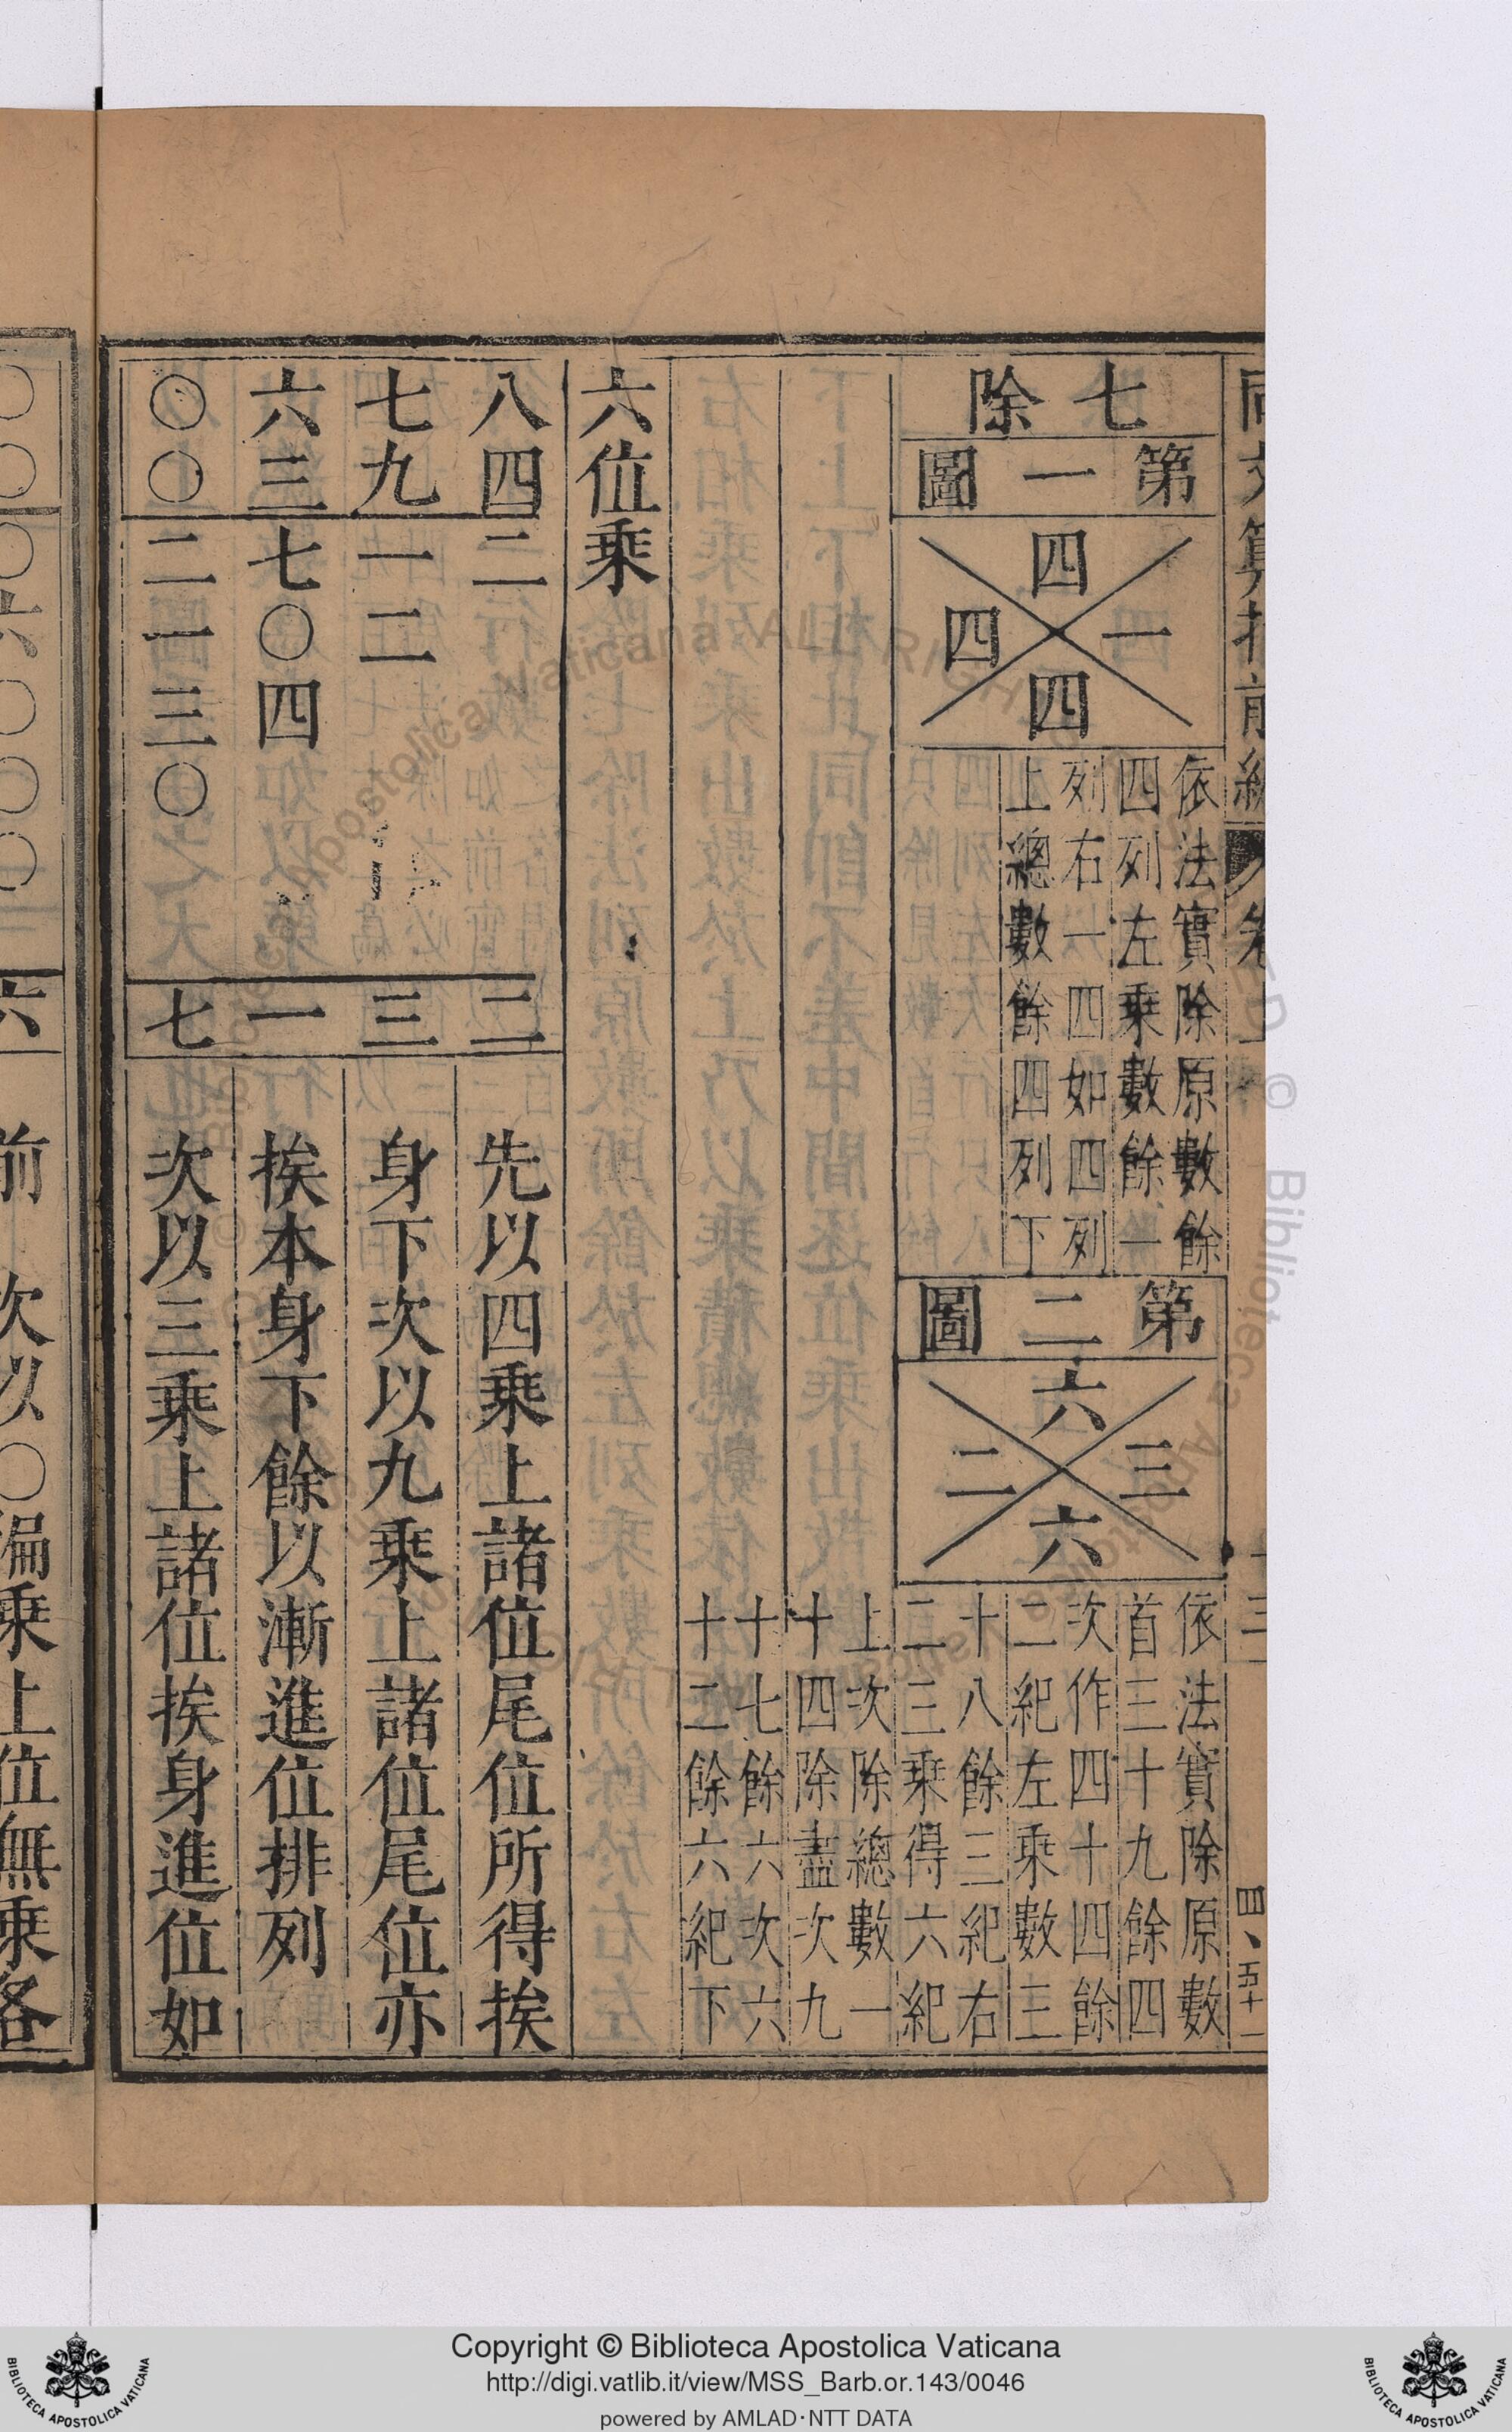 七除
第一圖
四
一
四
四
依法實除原數餘
四列左乘數餘一
列右一四如四列
上總數餘四列下
第二圖
六
三
二
六
依法實除原數
首三十九餘四
次作四十四餘
二紀左乘數三
十八餘三紀右
二三乘得六紀
上次除總數一
十四除盡次九
十七餘六次六
十二餘六紀下
六位乘
八四二
七九一二
六三七〇四
〇〇二一三〇
二
三
一
七
先以四乘上諸位尾位所得挨
身下次以九乘上諸位尾位亦
挨本身下餘以漸進位排列
次以三乘上諸位挨身進位如
六
前 次以〇徧乘上位無乘各
四、五十一
Copyright © Biblioteca Apostolica Vaticana
http://digi.vatlib.it/view/MSS_Barb.or.143/0046
powered by AMLAD·NTT DATA
BIBLIOTECA APOSTOLICA VATICANA
BIBLIOTECA APOSTOLICA VATICANA